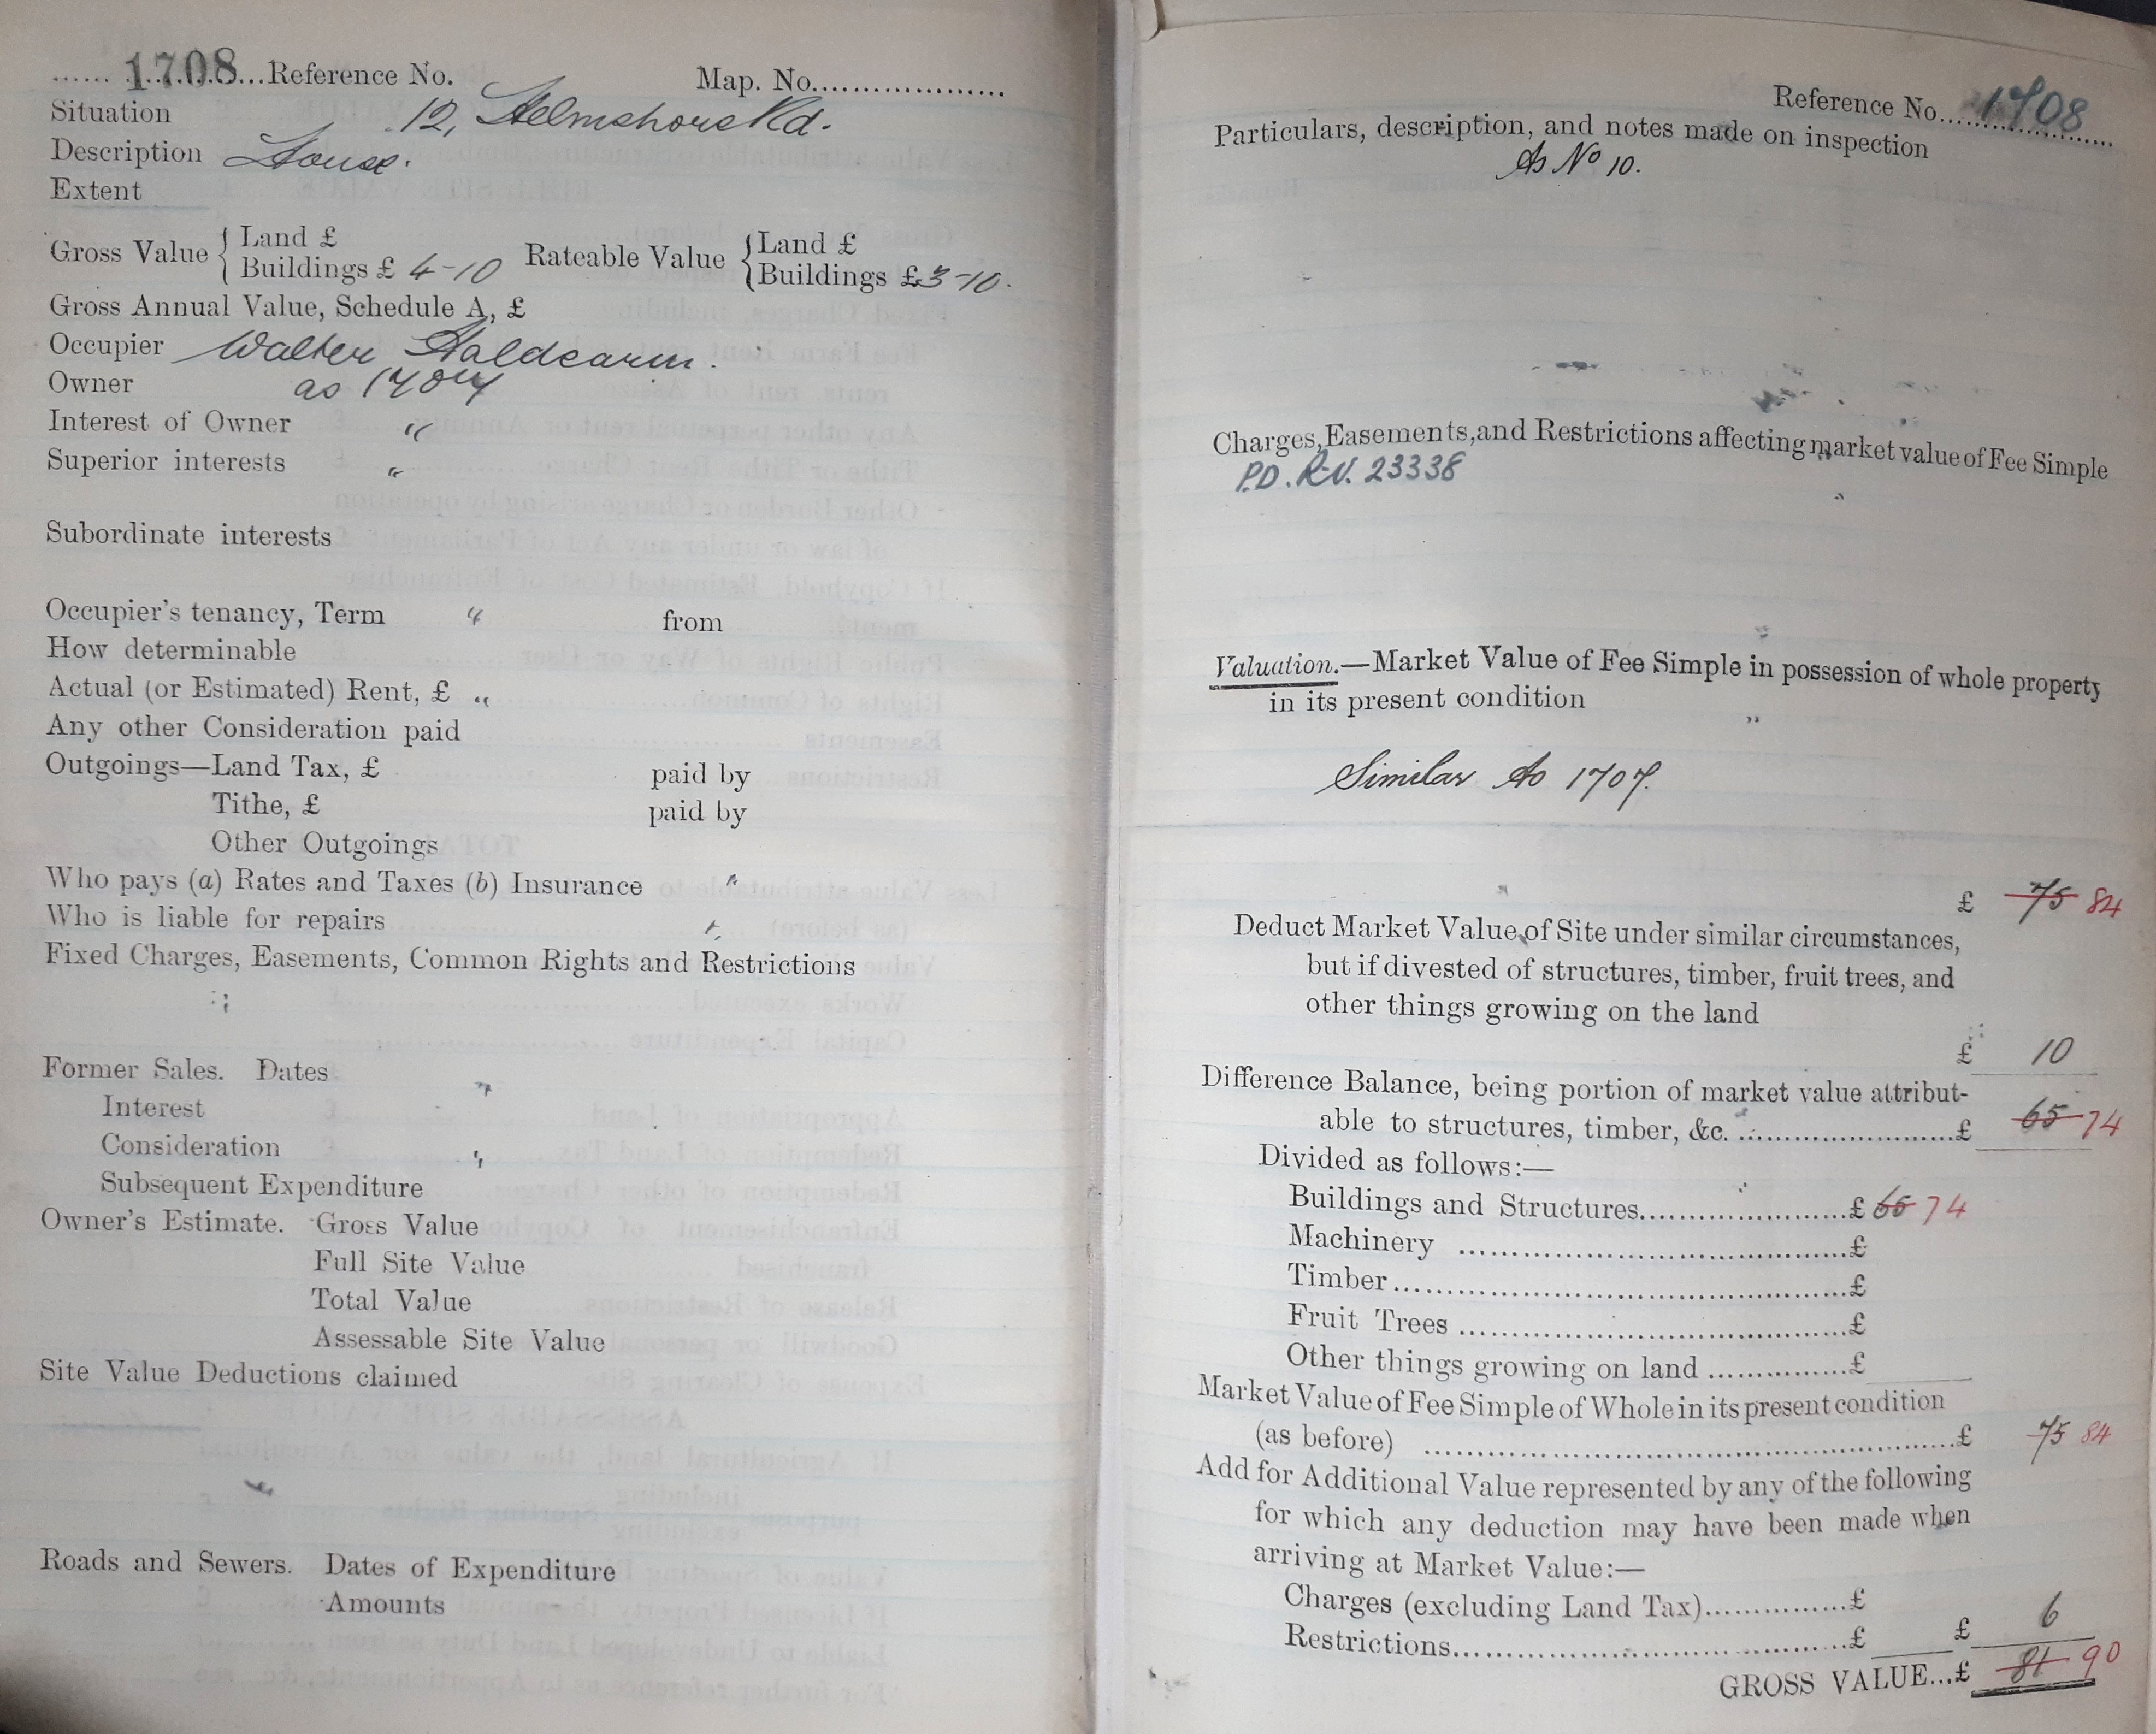 ...... 1708...Reference No. Map. No....................
Situation 12, Helmshore Rd.
Description House.
Extent
Gross Value { Land £
Buildings £ 4-10 Rateable Value { Land £
Buildings £3-10.
Gross Annual Value, Schedule A, £
Occupier Walter
Owner as 1707
Interest of Owner "
Superior interests "
Subordinate interests
Occupier's tenancy, Term " from
How determinable
Actual (or Estimated) Rent, £ "
Any other Consideration paid
Outgoings—Land Tax, £ paid by
Tithe, £ paid by
Other Outgoings
Who pays (a) Rates and Taxes (b) Insurance "
Who is liable for repairs "
Fixed Charges, Easements, Common Rights and Restrictions
Former Sales. Dates "
Interest
Consideration "
Subsequent Expenditure
Owner's Estimate. Gross Value
Full Site Value
Total Value
Assessable Site Value
Site Value Deductions claimed
Roads and Sewers. Dates of Expenditure
Amounts
Reference No....1708
Particulars, description, and notes made on inspection
As No 10.
Charges, Easements, and Restrictions affecting market value of Fee Simple
P.D. R.V. 23338
Valuation.—Market Value of Fee Simple in possession of whole property
in its present condition
Similar to 1707.
£ 75 84
Deduct Market Value of Site under similar circumstances,
but if divested of structures, timber, fruit trees, and
other things growing on the land
£ 10
Difference Balance, being portion of market value attribut-
able to structures, timber, &c. ........................£ 65 74
Divided as follows:—
Buildings and Structures.......................£ 65 74
Machinery .......................................£
Timber.............................................£
Fruit Trees .......................................£
Other things growing on land ...............£
Market Value of Fee Simple of Whole in its present condition
(as before) .......................................................£ 75 84
Add for Additional Value represented by any of the following
for which any deduction may have been made when
arriving at Market Value:—
Charges (excluding Land Tax)...............£
Restrictions.......................................£ £ 6
GROSS VALUE...£ 81 90